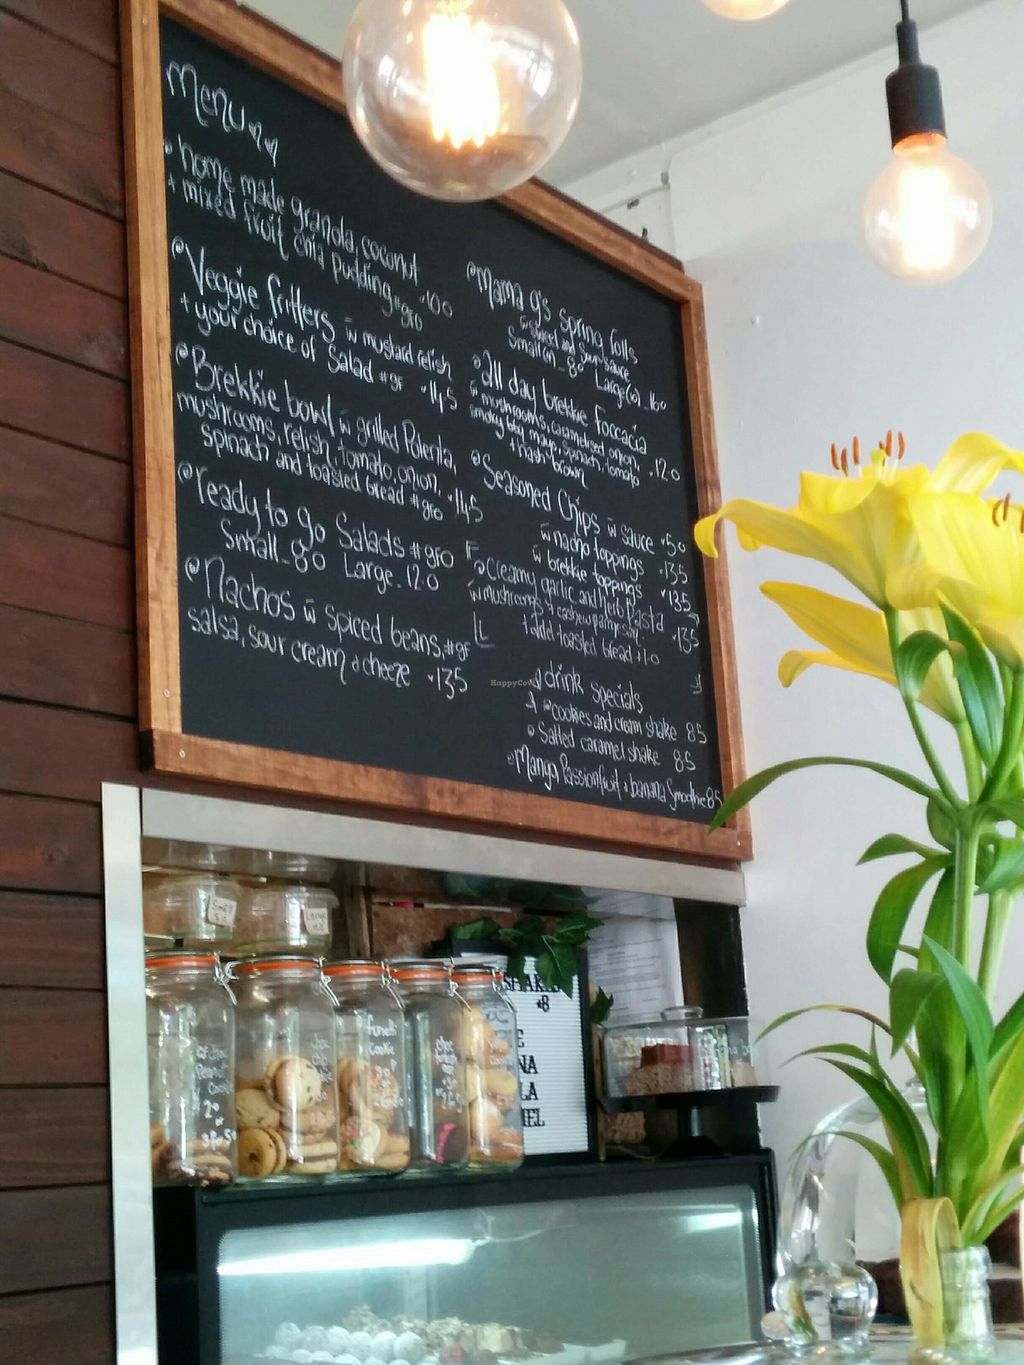 Menu
home made granola, coconut
+ mixed fruit chia pudding #gfo
Veggie fritters w mustard relish
+ your choice of Salad #gf 14.5
Brekkie bowl w grilled Polenta,
mushrooms, relish, tomato, onion,
spinach and toasted bread #gfo 14.5
ready to go Salads #gfo
Small_8.0 Large_12.0
Nachos w spiced beans, #gf
salsa, sour cream + cheeze 13.5
Mama g's spring rolls
w sweet and sour sauce
Large
all day brekkie Foccacia
w mushrooms, caramelised onion,
smokey bbq mayo, spinach, tomato
+ hash brown 12.0
Seasoned Chips w sauce 5.0
w nacho toppings 13.5
w brekkie toppings 13.5
creamy garlic and herb Pasta
w mushrooms + cashew parmesan 13.5
+ add toasted bread +1.0
drink specials
cookies and cream shake 8.5
Salted caramel shake 8.5
Mango, Passionfruit + banana Smoothie 8.5
HappyCow
Large
SHAKE
8
E
NA
LA
MEL
Peanut
Cookie
funetti
Cookie